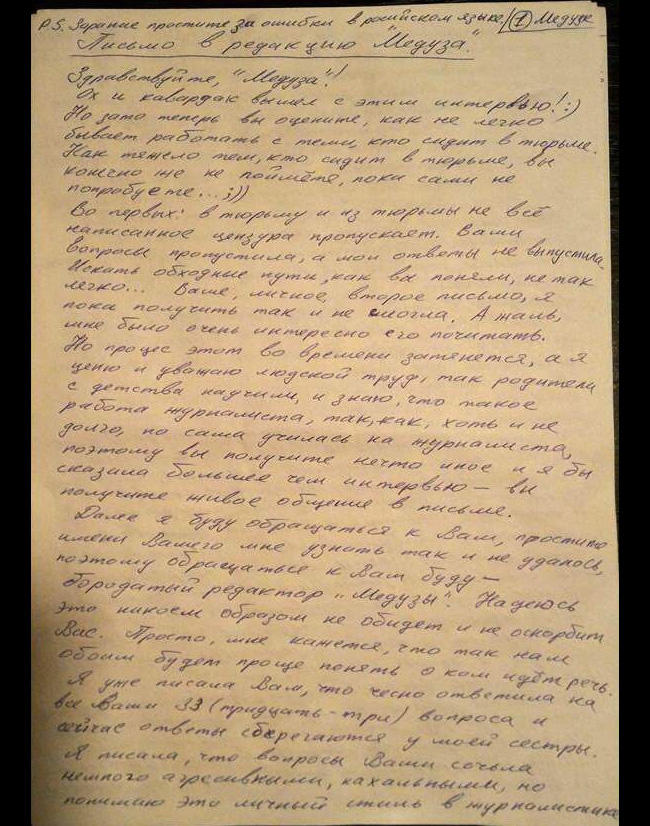 P.S. Зарание простите за ошибки в росийском языке/ ① Медузе
Письмо в редакцию "Медуза."
Здравствуйте, "Медуза"!
Ох и кавардак вышел с этим интервью! :)
Но зато теперь вы оцените, как не легко
бывает работать с теми, кто сидит в тюрьме.
Как тяжело тем, кто сидит в тюрьме, вы
конечно же не поймёте, пока сами не
попробуете...;))
Во первых: в тюрьму и из тюрьмы не всё
написанное цензура пропускает. Вами
вопросы пропустила, а мои ответы не выпустила.
Искать обходные пути, как вы поняли, не так
легко... Ваше, личное, второе письмо, я
пока получить так и не смогла. А жаль,
мне было очень интересно его почитать.
Но процес этот во времени затянется, а я
ценю и уважаю людской труд, так родители
с детства научили, и знаю, что такое
работа журналиста, так, как, хоть и не
долго, но сама училась на журналиста,
поэтому вы получите нечто иное и я бы
сказала большее чем интервью — вы
получите живое общение в письме.
Далее я буду обращаться к Вам, простите
имени Вашего мне узнать так и не удалось,
поэтому обращаться к Вам буду —
Бородатый редактор "Медузы". Надеюсь
это никоем образом не обидет и не оскорбит
Вас. Просто, мне кажется, что так нам
обоим будет проще понять о ком идёт речь.
Я уже писала Вам, что чесно ответила на
все Ваши 33 (тридцать-три) вопроса и
сейчас ответы сберегаются у моей сестры.
Я писала, что вопросы Ваши сочла
немного агресивными, нахальными, но
понимаю это личный стиль в журналистике